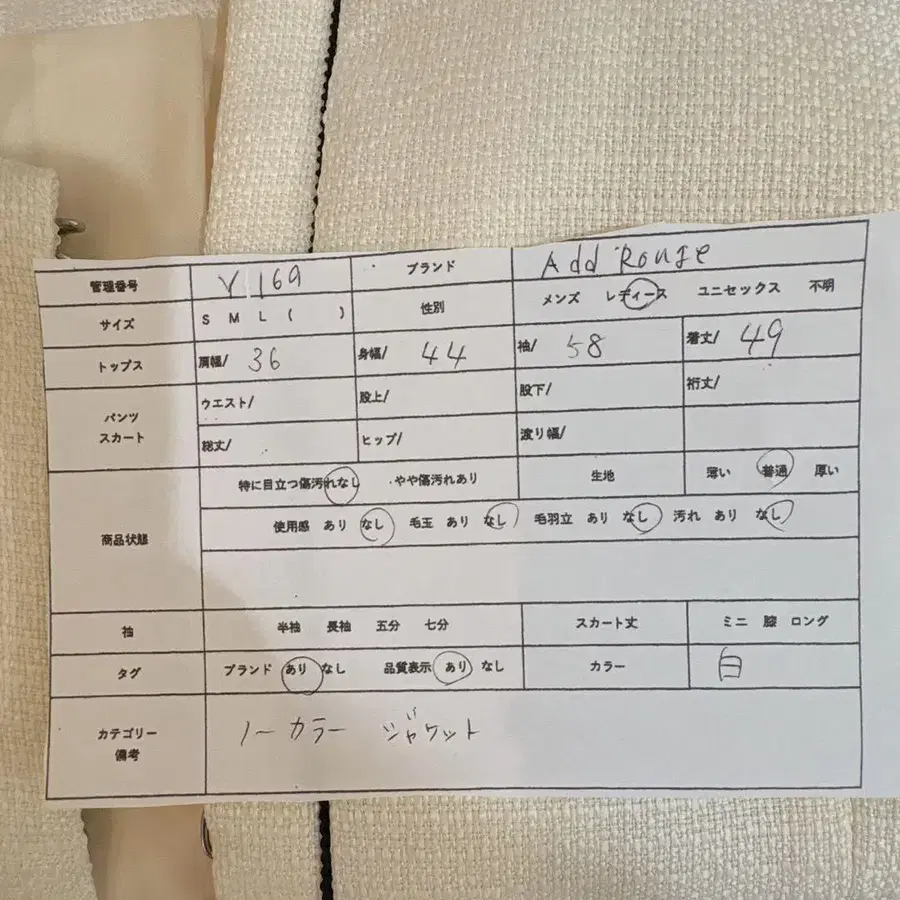 管理番号 Y 169 ブランド Add Rouge
サイズ S M L ( ) 性別 メンズ レディース ユニセックス 不明
トップス 肩幅/ 36 身幅/ 44 袖/ 58 着丈/ 49
パンツ スカート ウエスト/ 股上/ 股下/ 裄丈/
総丈/ ヒップ/ 渡り幅/
商品状態 特に目立つ傷汚れなし ・やや傷汚れあり 生地 薄い 普通 厚い
使用感 あり なし 毛玉 あり なし 毛羽立 あり なし 汚れ あり なし
袖 半袖 長袖 五分 七分 スカート丈 ミニ 膝 ロング
タグ ブランド あり なし 品質表示 あり なし カラー 白
カテゴリー
備考
ノーカラー ジャケット